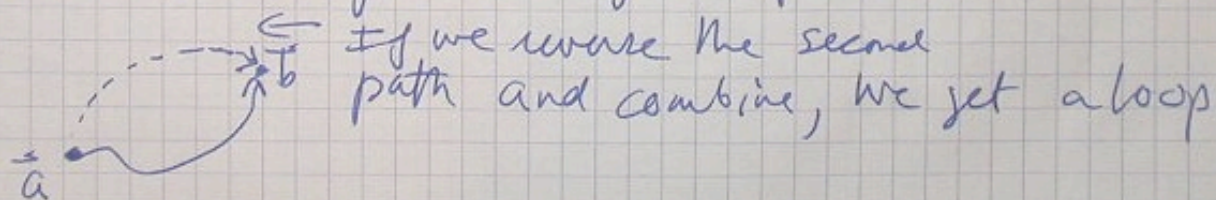 ⇐ If we reverse the second
b⃗ path and combine, we get a loop
a⃗